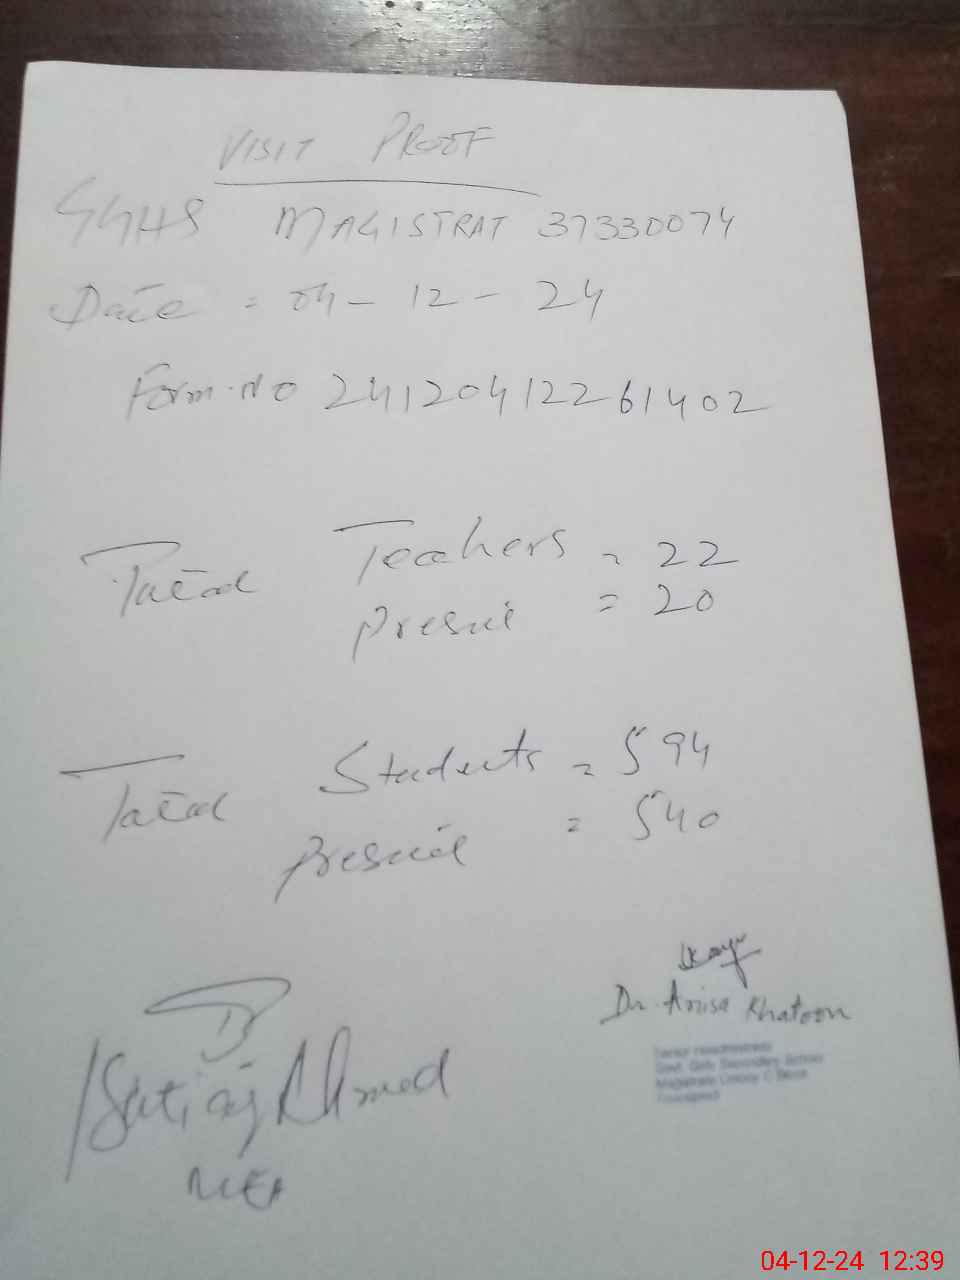 VISIT PROOF
GGHS MAGISTRAT 37330074
Date = 04-12-24
Form.No 24120412261402
Total Teachers = 22
Present = 20
Total Students = 594
Present = 540
Dr. Anisa Khatoon
Senior Headmistress
Govt. Girls Secondary School
Magistrate Colony
Ahmed
MEA
04-12-24 12:39